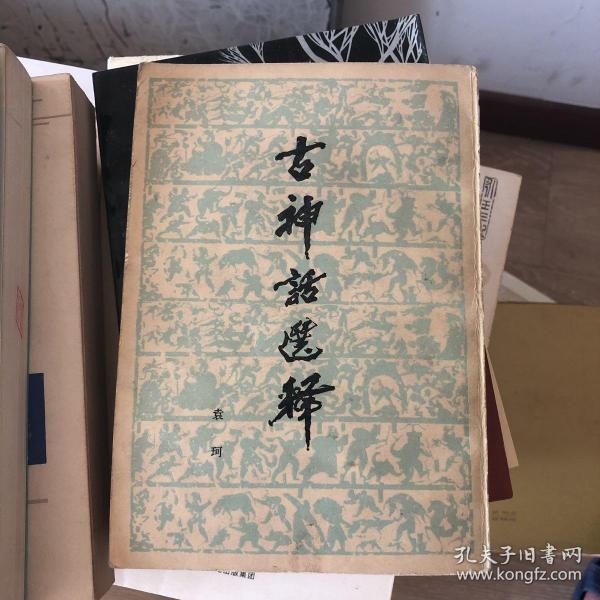 古神話選釋
袁珂
出版集团
孔夫子旧书网
www.kongfz.com